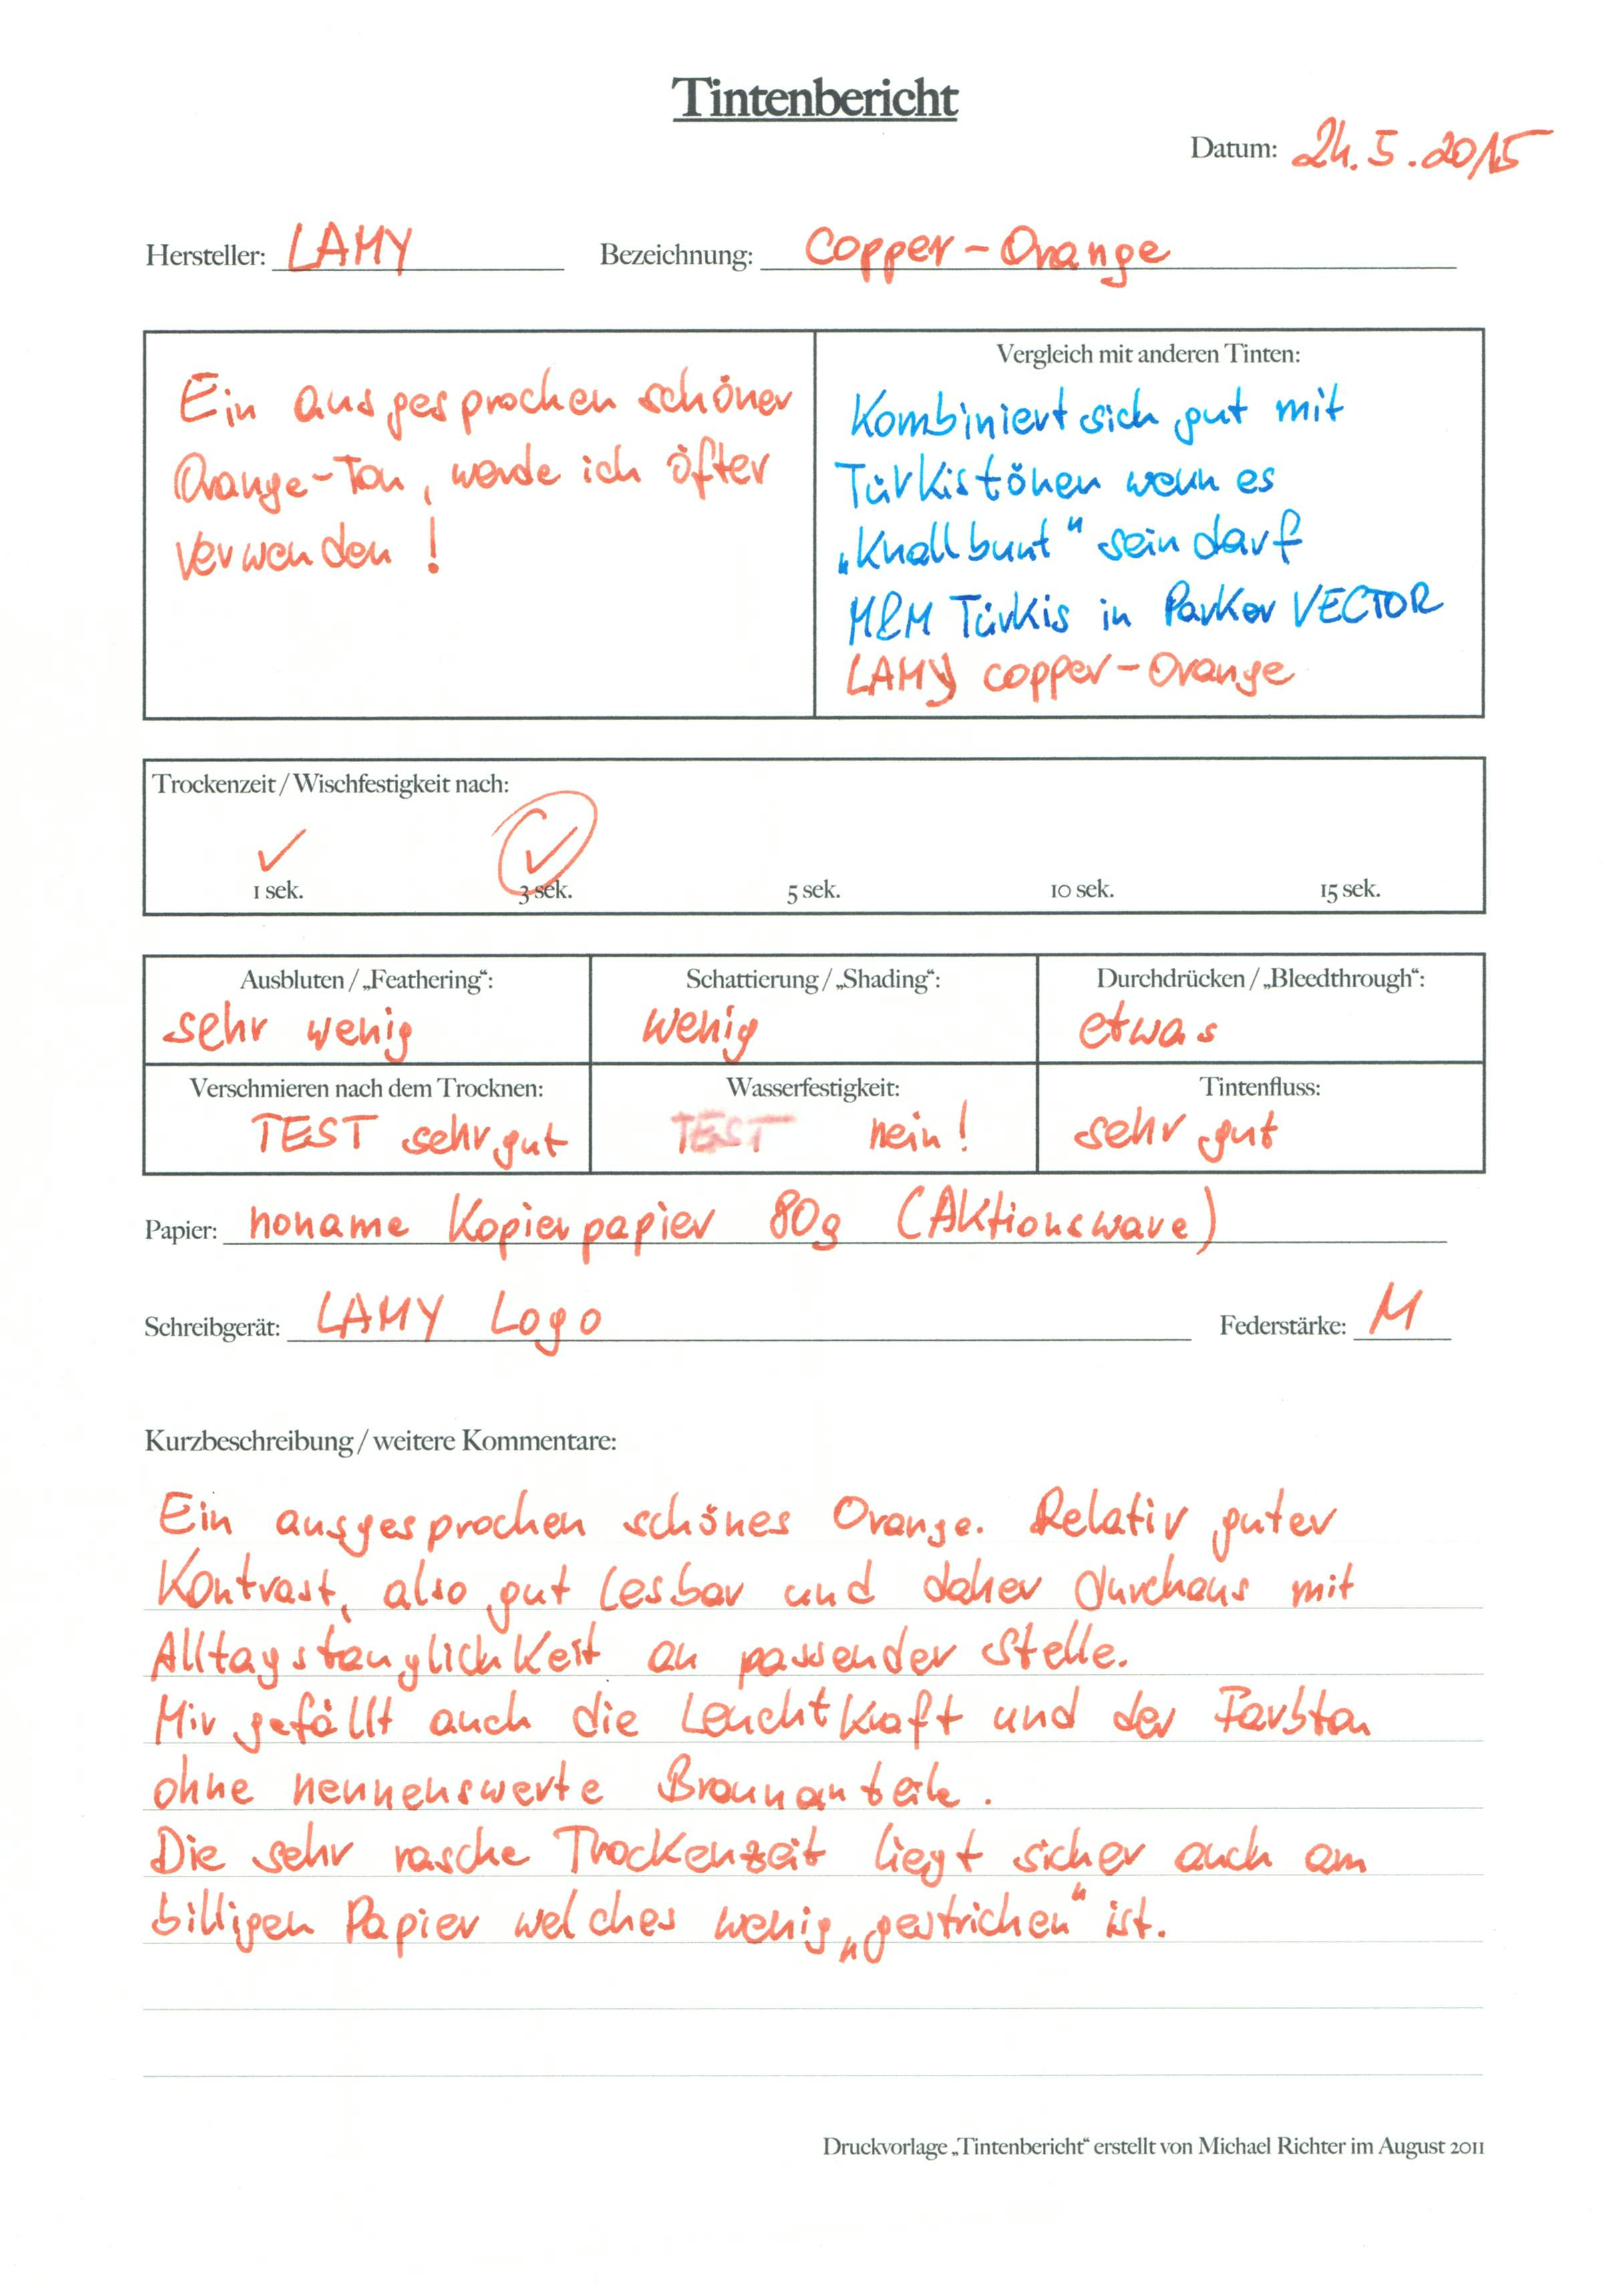 Tintenbericht
Datum: 24.5.2015
Hersteller: LAMY Bezeichnung: Copper-Orange
Ein ausgesprochen schöner
Orange-Ton, werde ich öfter
verwenden!
Vergleich mit anderen Tinten:
Kombiniert sich gut mit
Türkistönen wenn es
„Knallbunt“ sein darf
M&M Türkis in Parker VECTOR
LAMY copper-Orange
Trockenzeit / Wischfestigkeit nach:
1 sek. 3 sek. 5 sek. 10 sek. 15 sek.
Ausbluten / „Feathering“: Schattierung / „Shading“: Durchdrücken / „Bleedthrough“:
sehr wenig wenig etwas
Verschmieren nach dem Trocknen: Wasserfestigkeit: Tintenfluss:
TEST sehr gut TEST nein! sehr gut
Papier: noname Kopierpapier 80g (Aktionsware)
Schreibgerät: LAMY Logo Federstärke: M
Kurzbeschreibung / weitere Kommentare:
Ein ausgesprochen schönes Orange. Relativ guter
Kontrast, also gut lesbar und daher durchaus mit
Alltagstauglichkeit an passender Stelle.
Mir gefällt auch die Leuchtkraft und der Farbton
ohne nennenswerte Braunanteile.
Die sehr rasche Trockenzeit liegt sicher auch am
billigen Papier welches wenig „gestrichen“ ist.
Druckvorlage „Tintenbericht“ erstellt von Michael Richter im August 2011